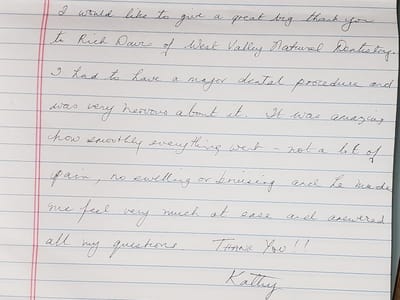 I would like to give a great big thank you
to Rich Davis of West Valley Natural Dentistry.
I had to have a major dental procedure and
was very nervous about it. It was amazing
how smoothly everything went - not a lot of
pain, no swelling or bruising and he made
me feel very much at ease and answered
all my questions. Thank You!!
Kathy